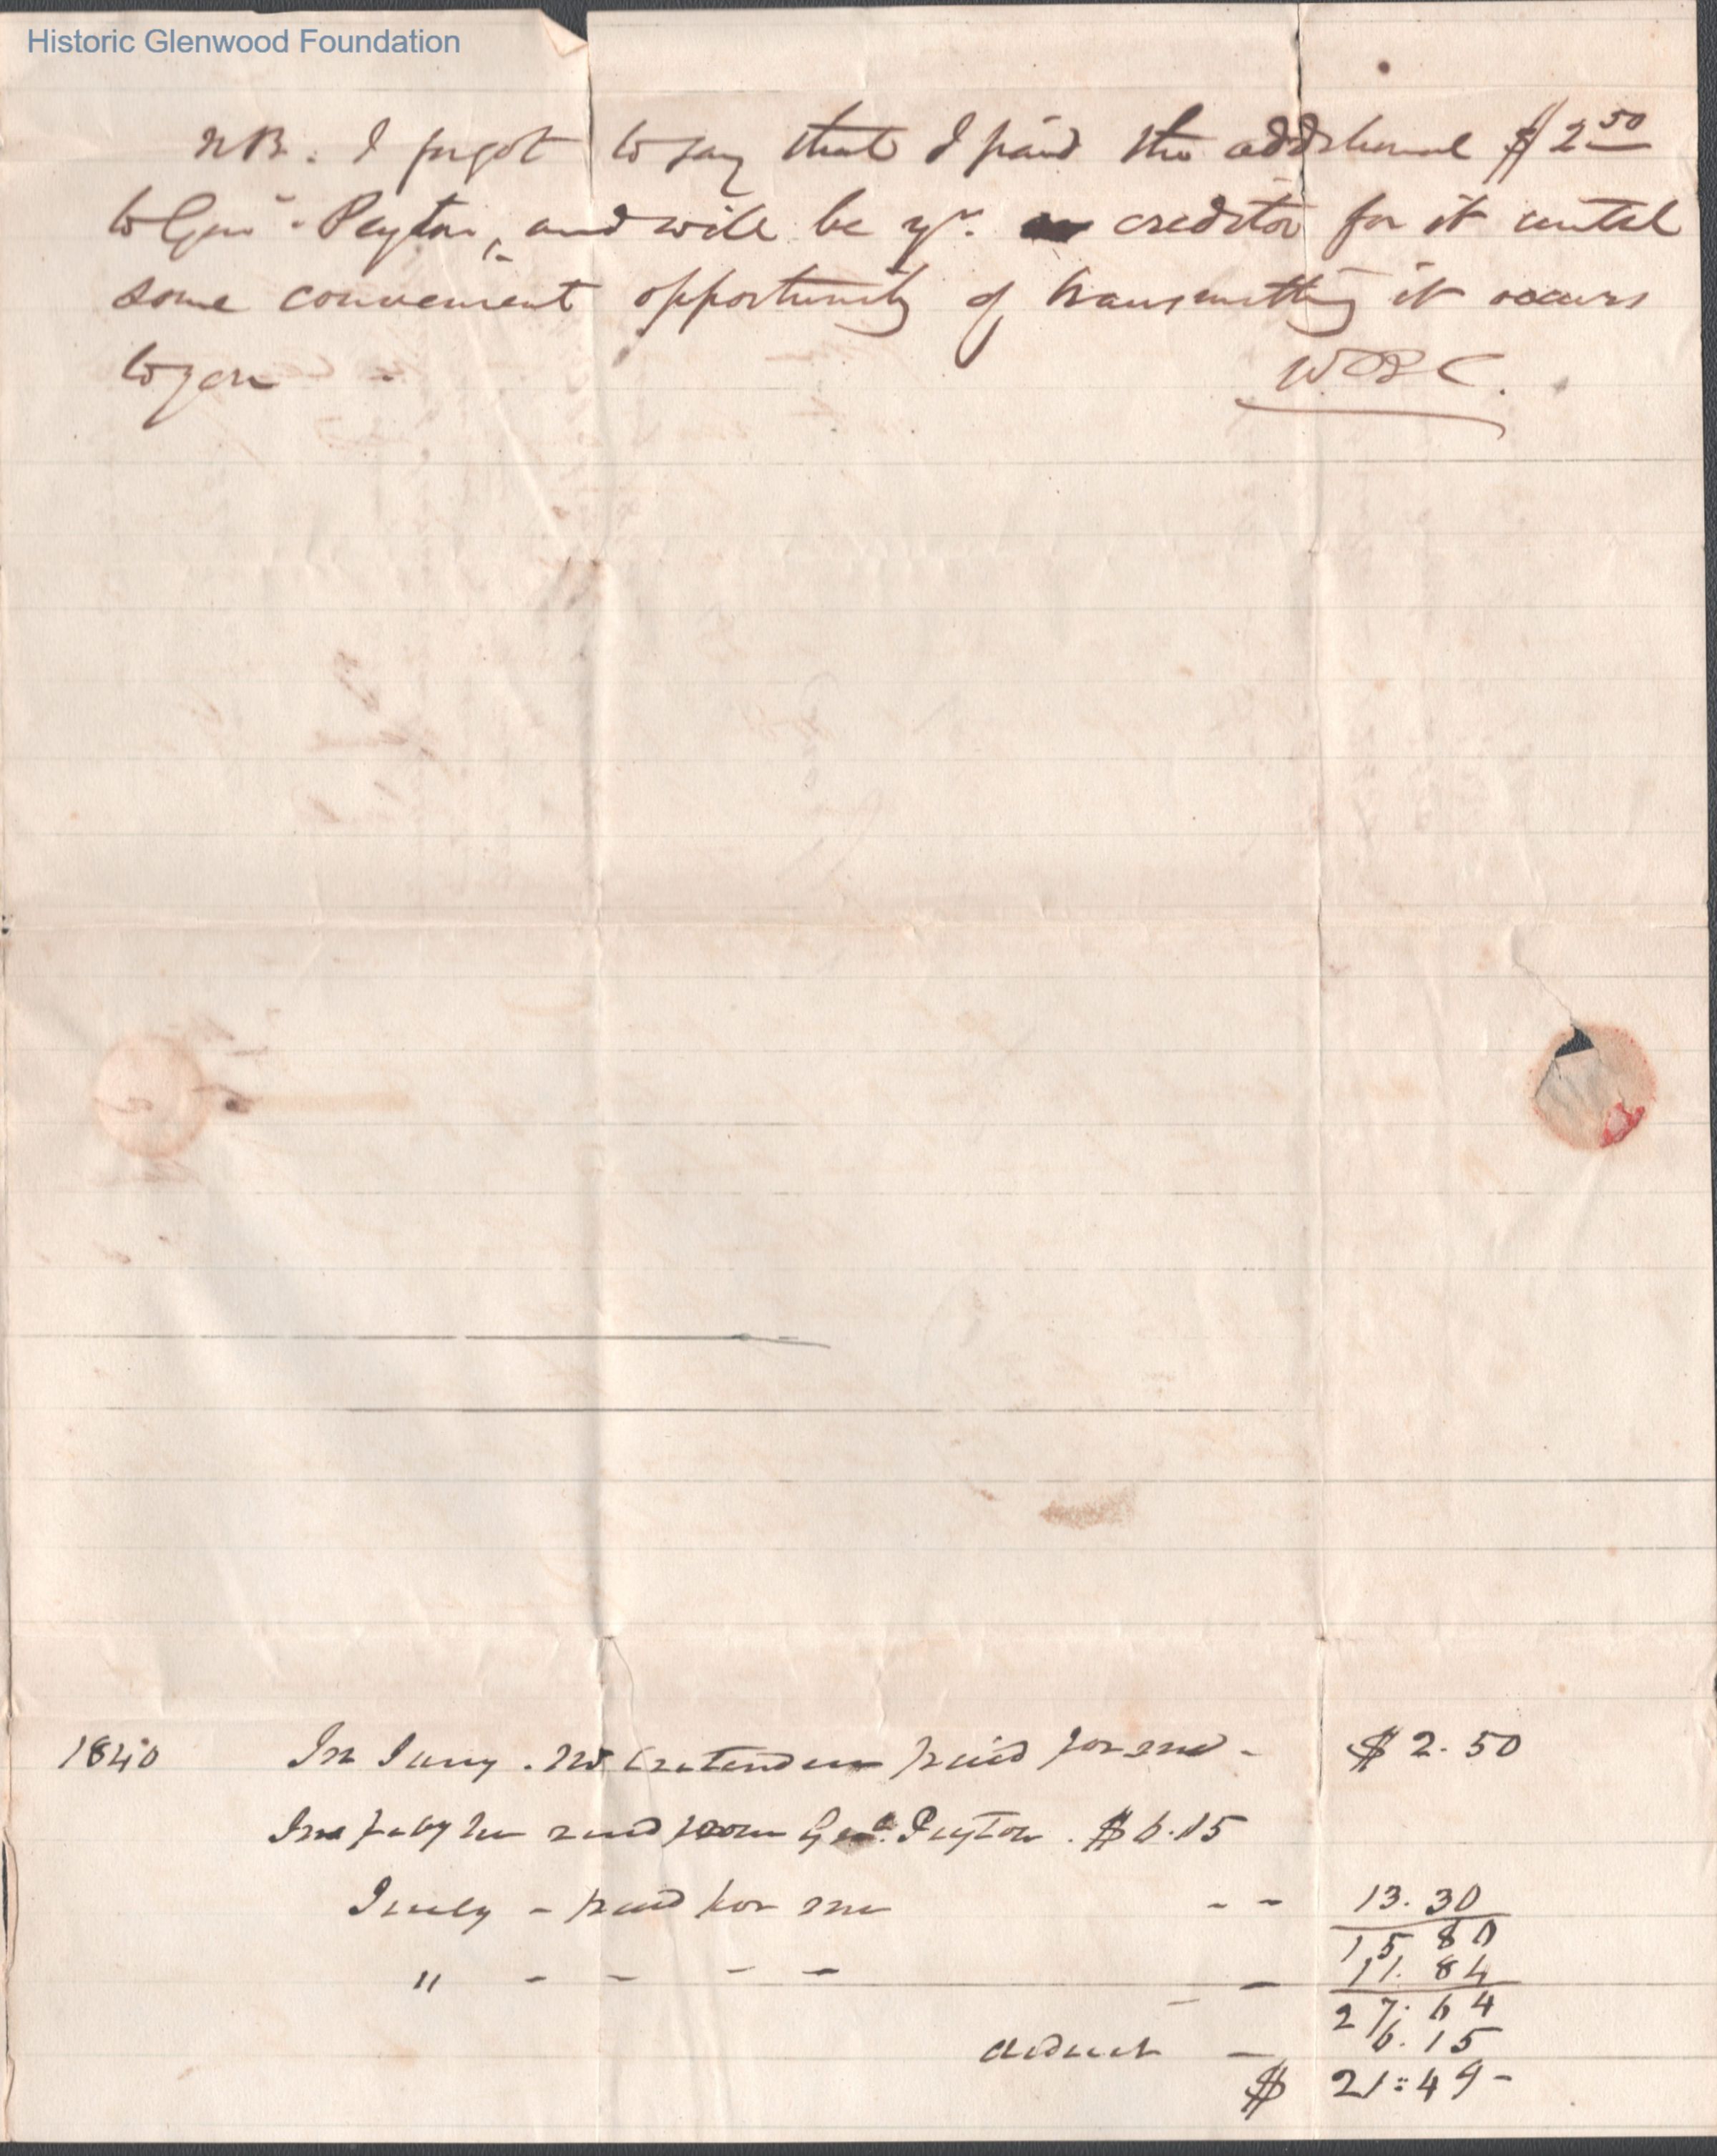 Historic Glenwood Foundation
NB. I forgot to say that I paid the additional $2 50
to Gen. Peyton, and will be yr. creditor for it until
some convenient opportunity of transmitting it occurs
to you -
W.B.C.
1840 In Jany. Mr Crittenden paid for me - $2.50
In Feby he recd from Genl. Peyton. $6.15
July - paid for me - - 13.30
15 80
" - - - - - 11.84
27.64
deduct - 6.15
$ 21:49-